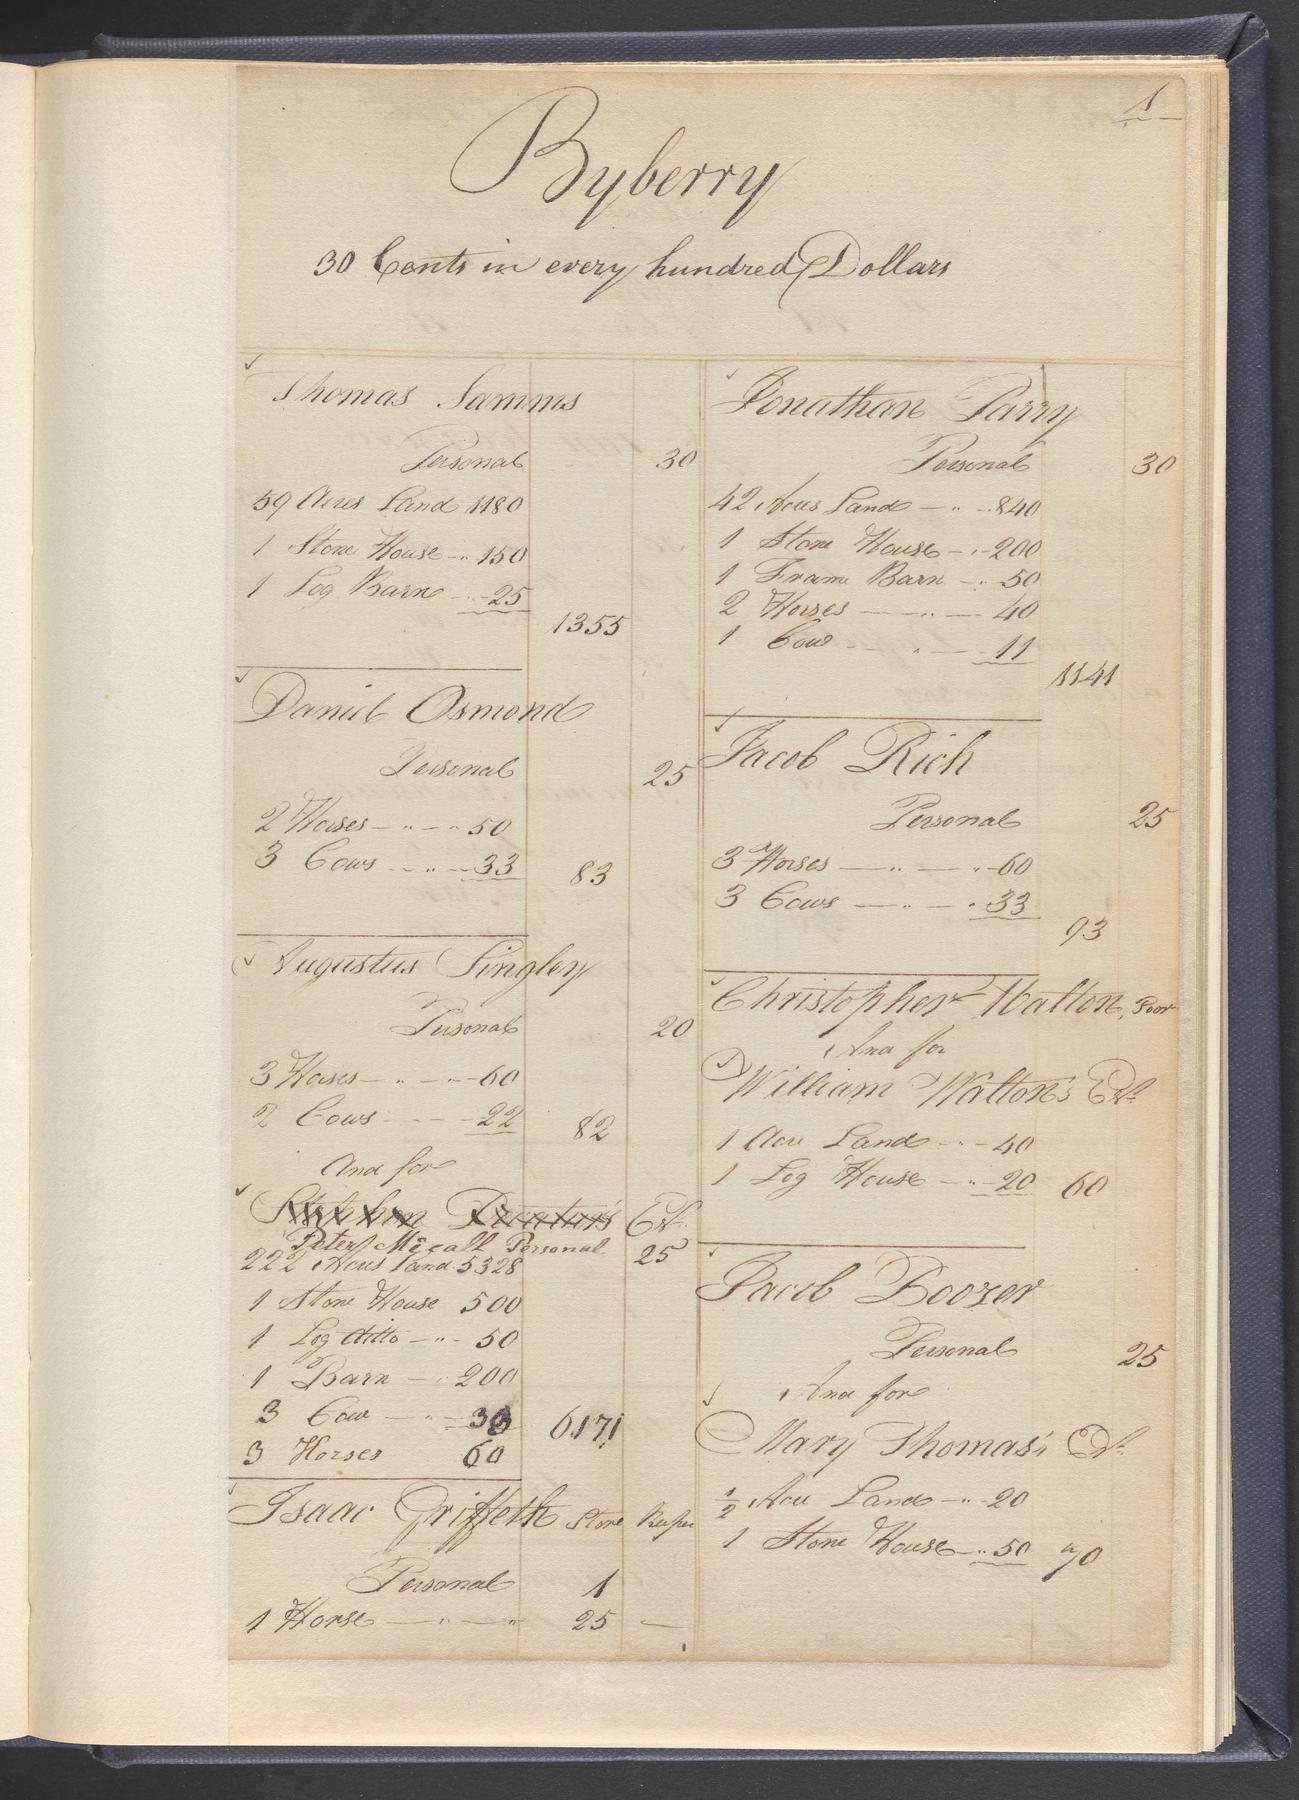 1
Byberry
30 Cents in every hundred Dollars
Thomas Samms
Personal 30
59 Acres Land 1180
1 Stone House 150
1 Log Barn 25
1355
Daniel Osmond
Personal 25
2 Horses 50
3 Cows 33 83
Augustus Singley
Personal 20
3 Horses 60
2 Cows 22 82
And for
Est.
Peter Micall Personal 25
222 Acres Land 5328
1 Stone House 500
1 Log ditto 50
1 Barn 200
3 Cow 33 6171
3 Horses 60
Isaac Griffeth Store Keeper
Personal 1
1 Horse 25
Jonathan Parry
Personal 30
42 Acres Land 840
1 Stone House 200
1 Frame Barn 50
2 Horses 40
1 Cow 11
1141
Jacob Rich
Personal 25
3 Horses 60
3 Cows 33
93
Christopher Walton, Poor
And for
William Walton's Est.
1 Acre Land 40
1 Log House 20 60
Jacob Boozer
Personal 25
And for
Mary Thomas's Est.
1/2 Acre Land 20
1 Stone House 50 70